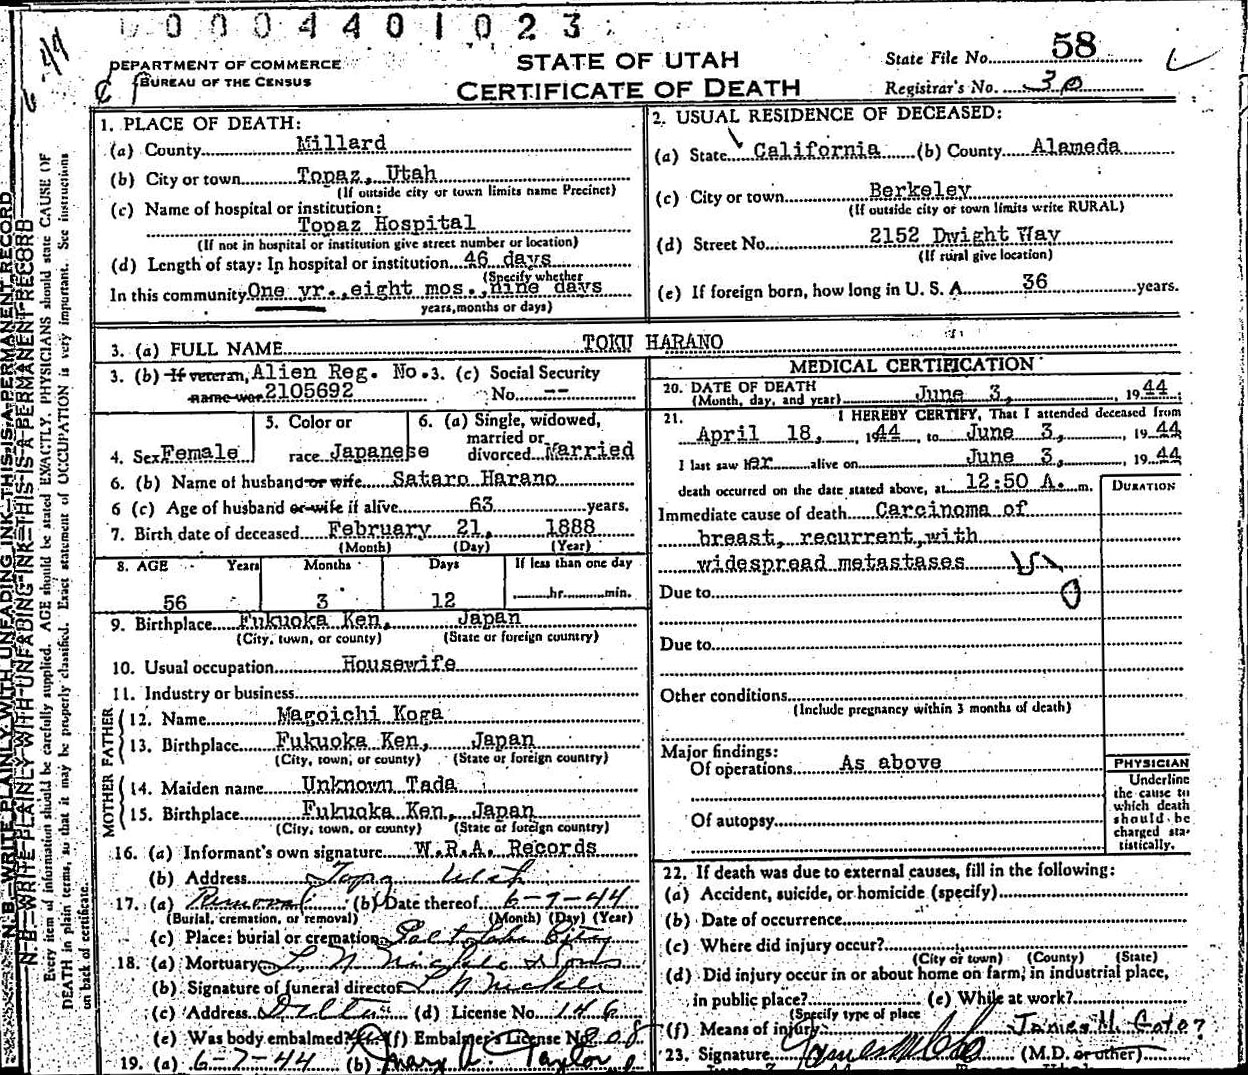 0004401023
DEPARTMENT OF COMMERCE
BUREAU OF THE CENSUS
STATE OF UTAH
CERTIFICATE OF DEATH
State File No. 58
Registrar's No. 30
1. PLACE OF DEATH:
(a) County Millard
(b) City or town Topaz, Utah
(If outside city or town limits name Precinct)
(c) Name of hospital or institution:
Topaz Hospital
(If not in hospital or institution give street number or location)
(d) Length of stay: In hospital or institution 46 days
(Specify whether
In this community One yr., eight mos., nine days
years, months or days)
2. USUAL RESIDENCE OF DECEASED:
(a) State California (b) County Alameda
(c) City or town Berkeley
(If outside city or town limits write RURAL)
(d) Street No. 2152 Dwight Way
(If rural give location)
(e) If foreign born, how long in U. S. A. 36 years.
3. (a) FULL NAME TOKU HARANO
3. (b) If veteran, Alien Reg. No. 3. (c) Social Security
name war 2105692 No. --
4. Sex Female
5. Color or
race Japanese
6. (a) Single, widowed,
married or
divorced Married
6. (b) Name of husband or wife Sataro Harano
6 (c) Age of husband or wife if alive 63 years.
7. Birth date of deceased February 21, 1888
(Month) (Day) (Year)
8. AGE Years Months Days If less than one day
56 3 12 hr. min.
9. Birthplace Fukuoka Ken, Japan
(City, town, or county) (State or foreign country)
10. Usual occupation Housewife
11. Industry or business
FATHER
12. Name Magoichi Koga
13. Birthplace Fukuoka Ken, Japan
(City, town, or county) (State or foreign country)
MOTHER
14. Maiden name Unknown Tada
15. Birthplace Fukuoka Ken, Japan
(City, town, or county) (State or foreign country)
16. (a) Informant's own signature W.R.A. Records
(b) Address Topaz Utah
17. (a) Removal (b) Date thereof 6-7-44
(Burial, cremation, or removal) (Month) (Day) (Year)
(c) Place: burial or cremation Salt Lake City
18. (a) Mortuary
(b) Signature of funeral director
(c) Address Delta (d) License No. 146
(e) Was body embalmed? (f) Embalmer's License No. 208
19. (a) 6-7-44 (b) Mary A. Taylor
MEDICAL CERTIFICATION
20. DATE OF DEATH
(Month, day, and year) June 3, 1944
21. I HEREBY CERTIFY, That I attended deceased from
April 18, 1944, to June 3, 1944
I last saw her alive on June 3, 1944
death occurred on the date stated above, at 12:50 A. m.
DURATION
Immediate cause of death Carcinoma of
breast, recurrent, with
widespread metastases
Due to
Due to
Other conditions
(Include pregnancy within 3 months of death)
Major findings:
Of operations As above
Of autopsy
PHYSICIAN
Underline
the cause to
which death
should be
charged sta-
tistically.
22. If death was due to external causes, fill in the following:
(a) Accident, suicide, or homicide (specify)
(b) Date of occurrence
(c) Where did injury occur?
(City or town) (County) (State)
(d) Did injury occur in or about home on farm, in industrial place,
in public place? (e) While at work?
(Specify type of place
(f) Means of injury:
23. Signature (M.D. or other)
N. B.—WRITE PLAINLY WITH UNFADING INK—THIS IS A PERMANENT RECORD
Every item of information should be carefully supplied. AGE should be stated EXACTLY. PHYSICIANS should state CAUSE OF
DEATH in plain terms, so that it may be properly classified. Exact statement of OCCUPATION is very important. See instructions
on back of certificate.